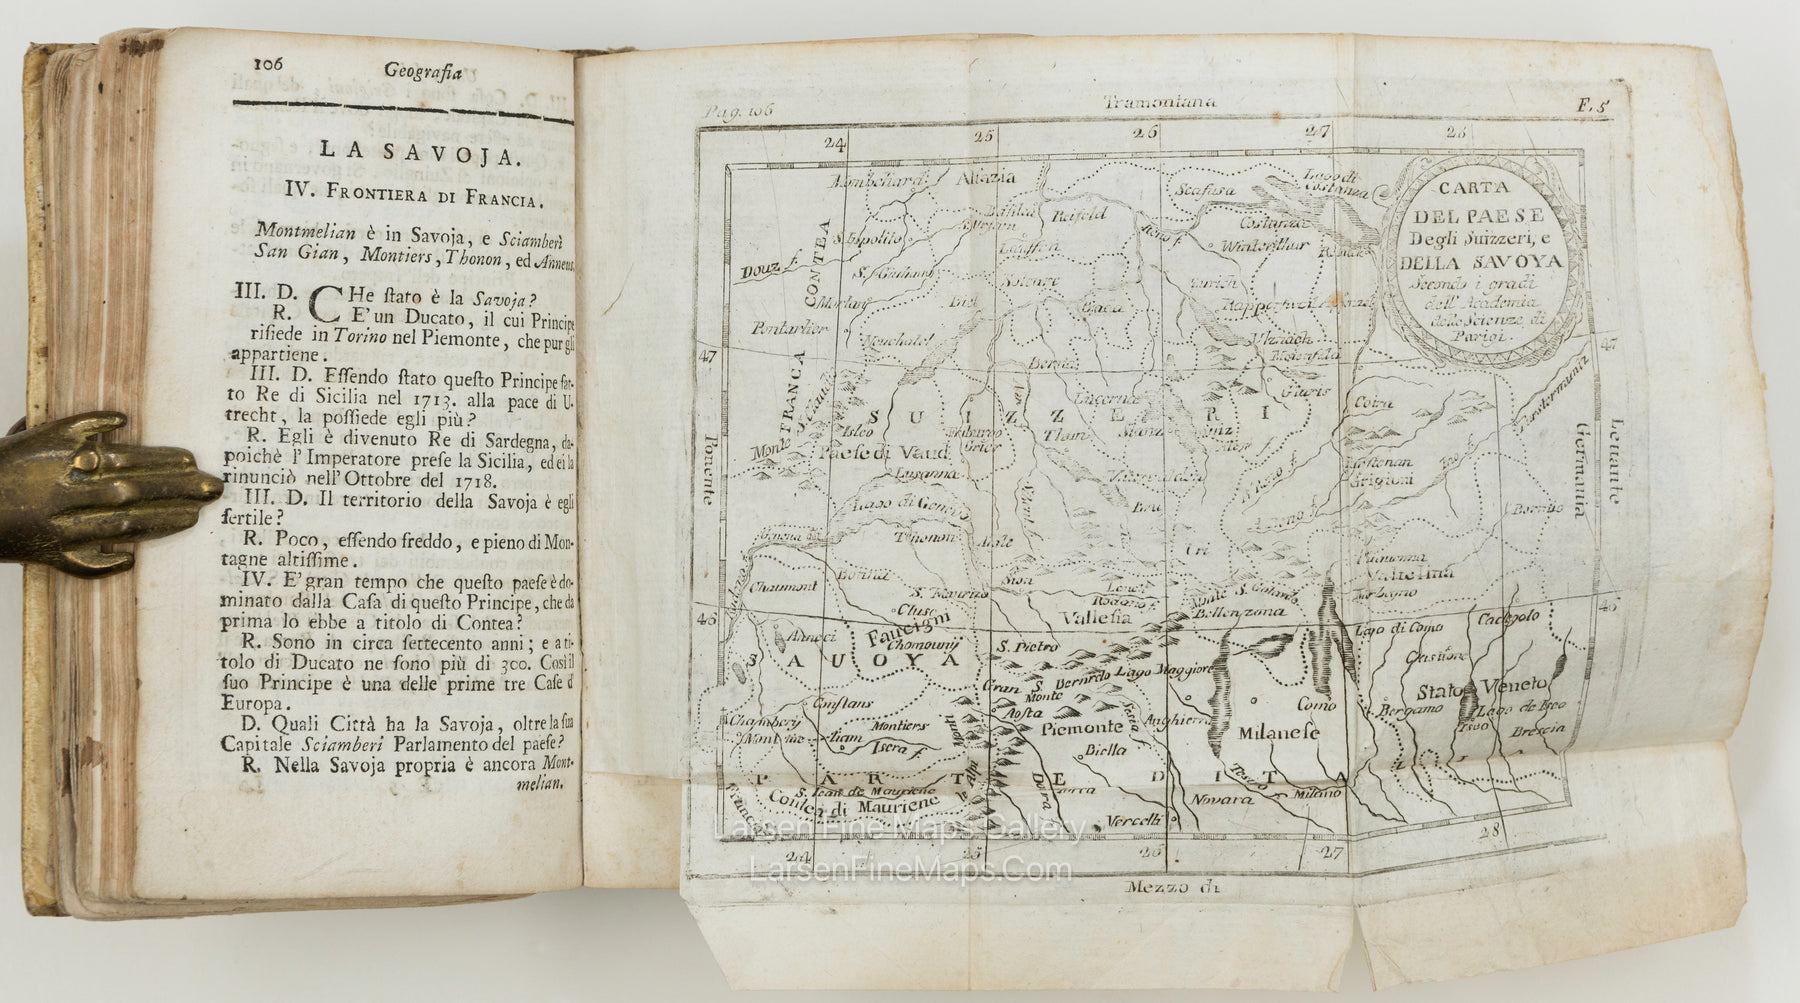 106
Geografia
LA SAVOJA.
IV. FRONTIERA DI FRANCIA.
Montmelian è in Savoja, e Sciamberì
San Gian, Montiers, Thonon, ed
III. D. CHe ſtato è la Savoja?
R. E' un Ducato, il cui Principe
riſiede in Torino nel Piemonte, che pur gli
appartiene.
III. D. Eſſendo ſtato queſto Principe fat-
to Re di Sicilia nel 1713. alla pace di U-
trecht, la poſſiede egli più?
R. Egli è divenuto Re di Sardegna, da-
poichè l'Imperatore preſe la Sicilia, ed ei la
rinunciò nell'Ottobre del 1718.
III. D. Il territorio della Savoja è egli
fertile?
R. Poco, eſſendo freddo, e pieno di Mon-
tagne altiſſime.
IV. E' gran tempo che queſto paeſe è do-
minato dalla Caſa di queſto Principe, che da
prima lo ebbe a titolo di Contea?
R. Sono in circa ſettecento anni; e a ti-
tolo di Ducato ne ſono più di 300. Così il
ſuo Principe è una delle prime tre Caſe d
Europa.
D. Quali Città ha la Savoja, oltre la ſua
Capitale Sciamberì Parlamento del paeſe?
R. Nella Savoja propria è ancora Mont-
melian.
Pag. 106
Tramontana
F. 5
24 25 26 27 28
CARTA
DEL PAESE
Degli Suizzeri, e
DELLA SAVOYA
Secondo i gradi
dell' Academia
delle Scienze di
Parigi.
Montbeliard
Alſazia
Scafusa
Lago di
Costanza
Basilea
Reifeld
Costanza
S. Hipolito
Reno f.
Winterthur
Douz f.
CONTEA
Lauffen
Solenze
Zurich
Morlay
Biel
Pontarlier
47
47
FRANCA
Berna
Lucerna
Glaris
Coira
SUIZZERI
Paeſe di Vaud
Luſanna
Grigioni
Bormio
Ponente
Levante
Germania
Lago di Geneva
Geneva
Thonon
Aigle
Uri
Chaumont
Sion
S. Maurizo
Valtelina
Monte S. Gotardo
Rodano f.
Bellenzona
46
46
Cluse
Vallesia
Anneci
Faucigni
Chomouny
S. Pietro
Lago di Como
SAUOYA
Gran S. Bernrdo
Monte
Lago Maggiore
Stato Veneto
Constans
Aosta
Piemonte
Como
Bergamo
Lago de Iseo
Chambery
Montiers
Sesia f.
Anghiera
Iseo
Isera f.
Biella
Milanese
Brescia
PARTE D ITA
S. Iean de Mauriene
Contea di Mauriene
Novara
Milano
Vercelli
24 25 26 27 28
Mezzo di
Larsen Fine Maps Gallery
LarsenFineMaps.Com